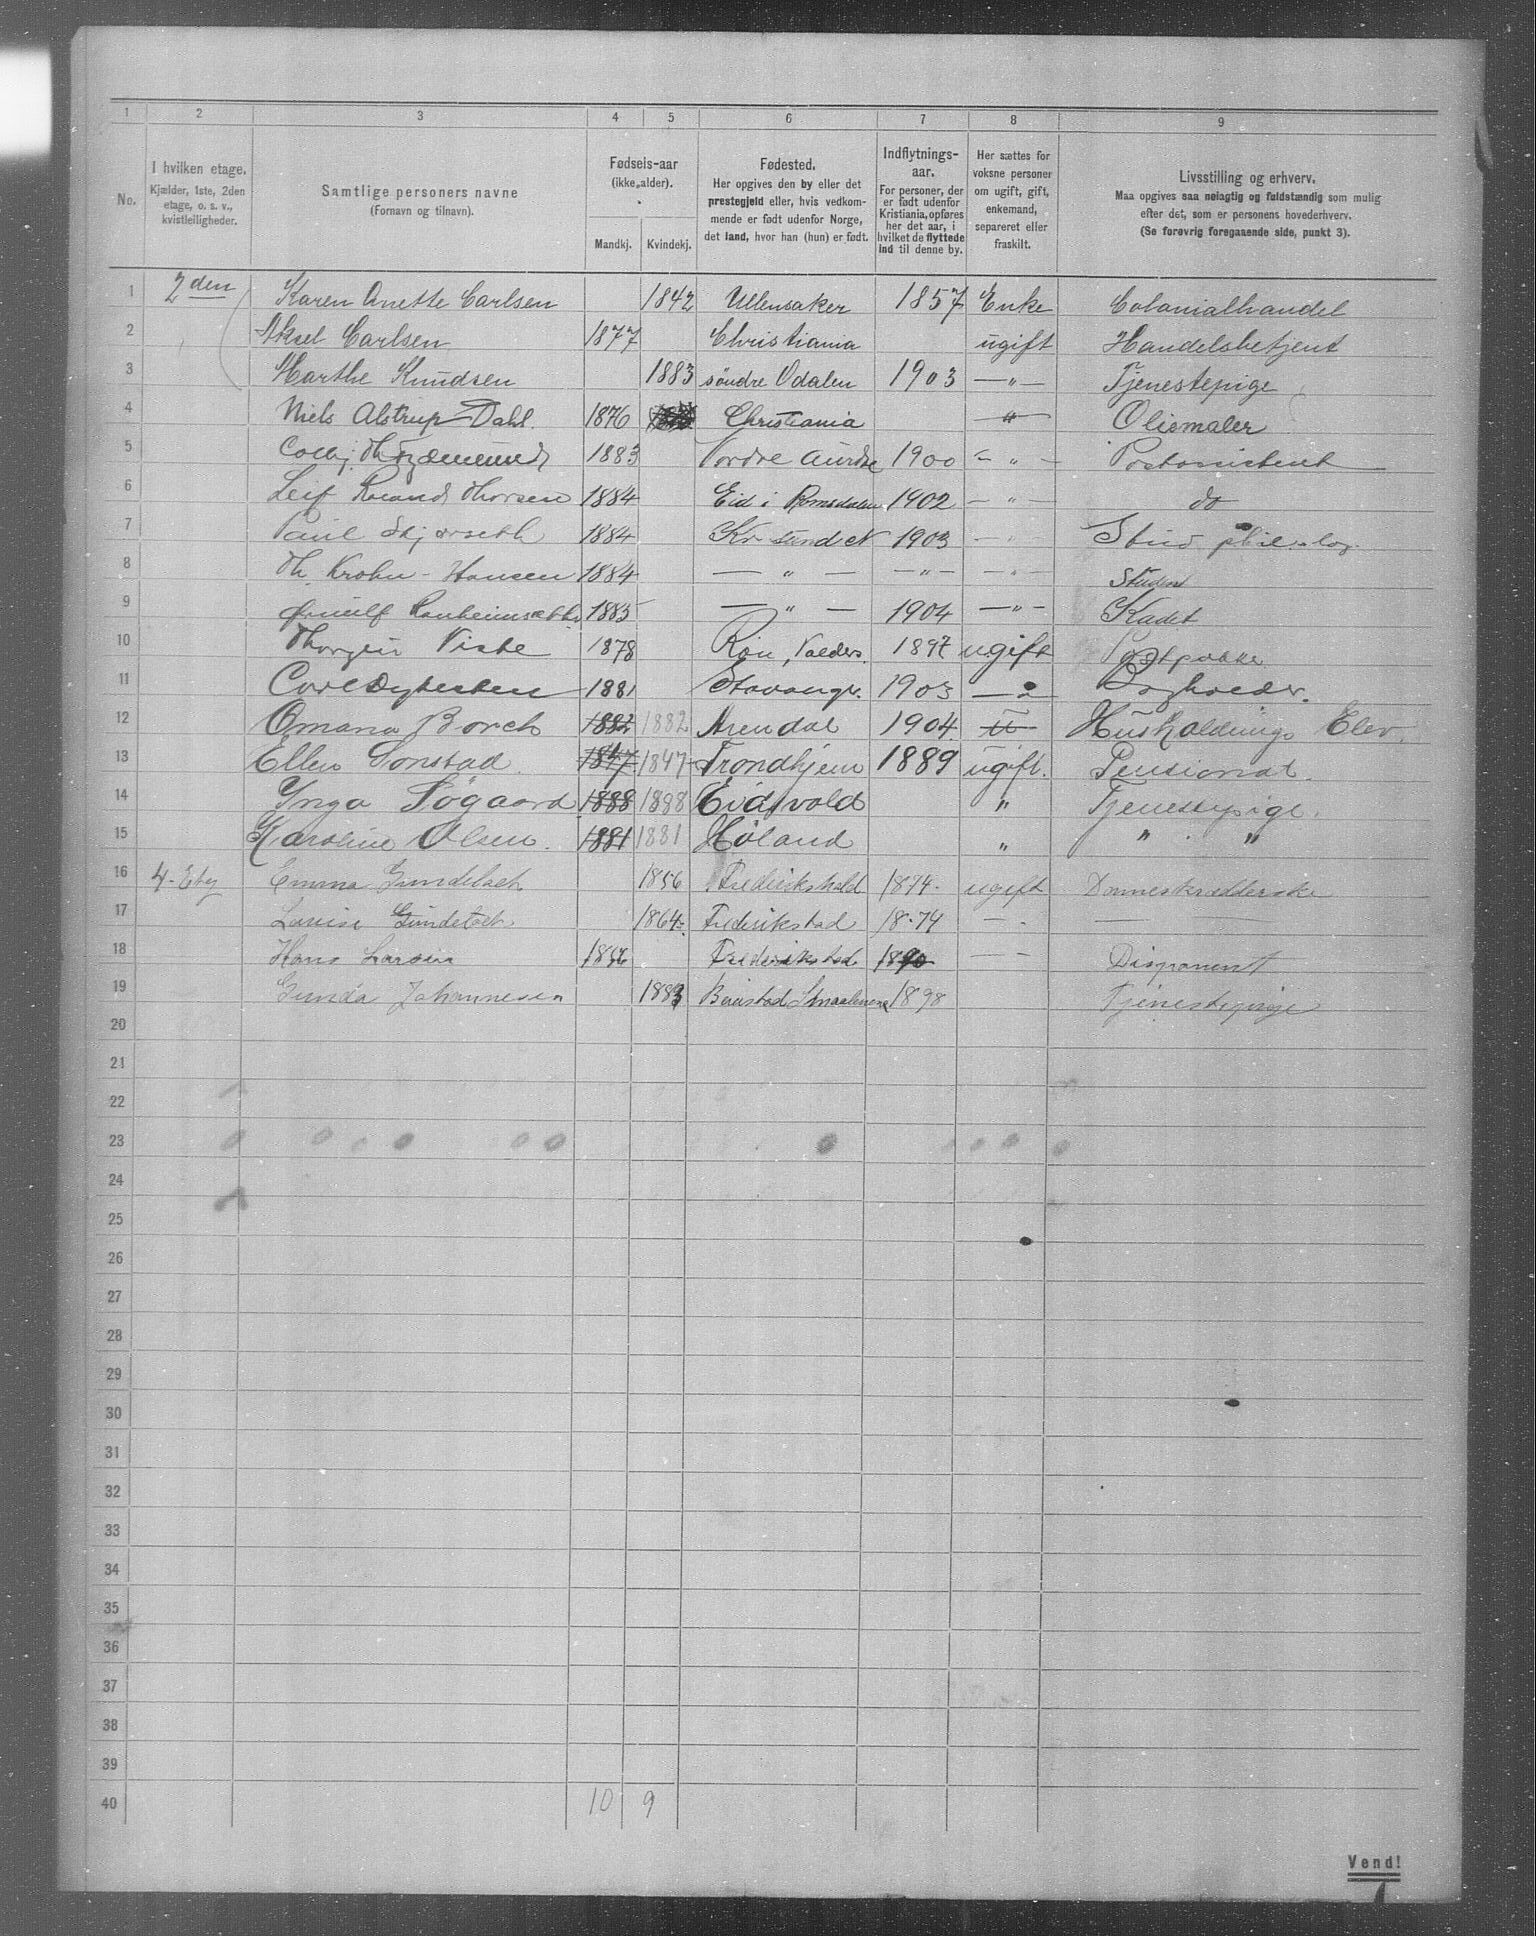 1 2 3 4 5 6 7 8 9
No.
I hvilken etage.
Kjælder, 1ste, 2den
etage, o. s. v.,
kvistleiligheder.
Samtlige personers navne
(Fornavn og tilnavn).
Fødsels-aar
(ikke „alder).
Mandkj. Kvindekj.
Fødested.
Her opgives den by eller det
prestegjeld eller, hvis vedkom-
mende er født udenfor Norge,
det land, hvor han (hun) er født.
Indflytnings-
aar.
For personer, der
er født udenfor
Kristiania, opføres
her det aar, i
hvilket de flyttede
ind til denne by.
Her sættes for
voksne personer
om ugift, gift,
enkemand,
separeret eller
fraskilt.
Livsstilling og erhverv.
Maa opgives saa nøiagtig og fuldstændig som mulig
efter det, som er personens hovederhverv.
(Se forøvrig foregaaende side, punkt 3).
1 2den Karen Anette Carlsen 1842 Ullensaker 1857 Enke Colonialhandel
2 Aksel Carlsen 1877 Christiania ugift Handelsbetjent
3 Marthe Knudsen 1883 söndre Odalen 1903 — „ — Tjenestepige
4 Niels Alstrup Dahl. 1876 Christiania „ Oliemaler
5 1883 Nordre Aurdal 1900 — „ — Postassistent
6 Leif Thorsen 1884 Eid i Romsdalen 1902 — „ — do
7 Paul Skjørseth 1884 Kr sund N 1903 — „ Stud. philolog
8 Th. Krohn-Hansen 1884 — „ — — „ — — „ — Student
9 1885 — „ — 1904 — „ — Kadet
10 Viste 1878 Røn, Valders. 1897 ugift
11 Carl 1881 Stavanger. 1903 — „ Bogholder.
12 Omana Borch 1882 1882 Arendal 1904 u Husholdnings Elev.
13 Ellen Sonstad. 1847 1847 Trondhjem 1889 ugift. Pensionat.
14 Ynga Søgaard 1888 1888 Eidsvold „ Tjenestepige.
15 Karoline Olsen. 1881 1881 Høland „ „ „
16 4-Etg Emma Gundelach 1856 Fredrikshald 1874. ugift Dameskrædderske
17 Louise Gundelach 1864 Frederikstad 1874 — -
18 Hans Larsen 1856 Frederikstad 1890 — — Disponent
19 Gunda Johannesen 1883 Smaalenene 1898 Tjenestepige
20
21
22
23
24
25
26
27
28
29
30
31
32
33
34
35
36
37
38
39
40 10 9
Vend!